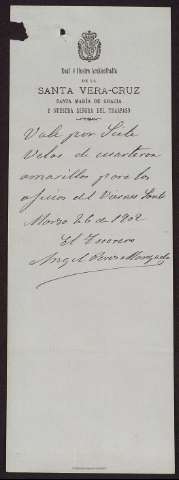 Real é Ilustre Archicofradía
DE LA
SANTA VERA-CRUZ
SANTA MARÍA DE GRACIA
Y NUESTRA SEÑORA DEL TRASPASO
Vale por Siete
Velas de cuarteron
amarillas para los
oficios del Viernes Santo
Marzo 26 de 1902
El Tesorero
Angel Perez Margado